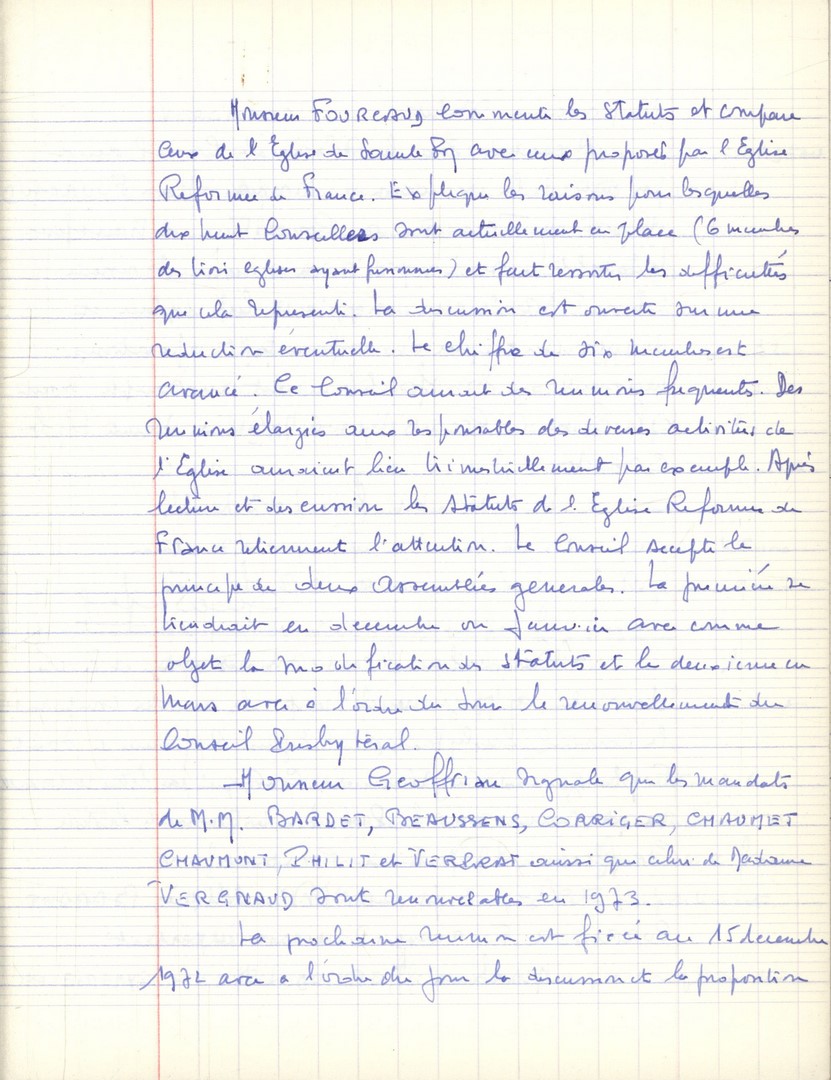 Monsieur FOURCAUD commente les Statuts et compare
ceux de l'Eglise de Sainte Foy avec ceux proposés par l'Eglise
Reformee de France. Explique les raisons pour lesquelles
dix huit Conseillers sont actuellement en place (6 membres
des trois eglises ayant fusionnées) et fait ressortir les difficultés
que cela représente. La discussion est ouverte sur une
reduction éventuelle. Le chiffre de six membres est
avancé. Ce Conseil aurait des reunions frequentes. Des
reunions élargies aux responsables des diverses activités de
l'Eglise auraient lieu trimestriellement par exemple. Après
lecture et discussion les Statuts de l'Eglise Reformee de
France retiennent l'attention. Le Conseil accepte le
principe de deux Assemblées generales. La première se
tiendrait en decembre ou Janvier avec comme
objet la modification des Statuts et la deuxieme en
Mars avec à l'ordre du Jour le renouvellement du
Conseil Presbytéral.
Monsieur Geoffriau signale que les mandats
de M.M. BARDET, BEAUSSENS, CORRIGER, CHAUMET
CHAUMONT, PHILIT et VERBRAT aussi que celui de Madame
VERGNAUD sont renouvelables en 1973.
La prochaine reunion est fixée au 15 decembre
1972 avec a l'ordre du jour la discussion et la proposition